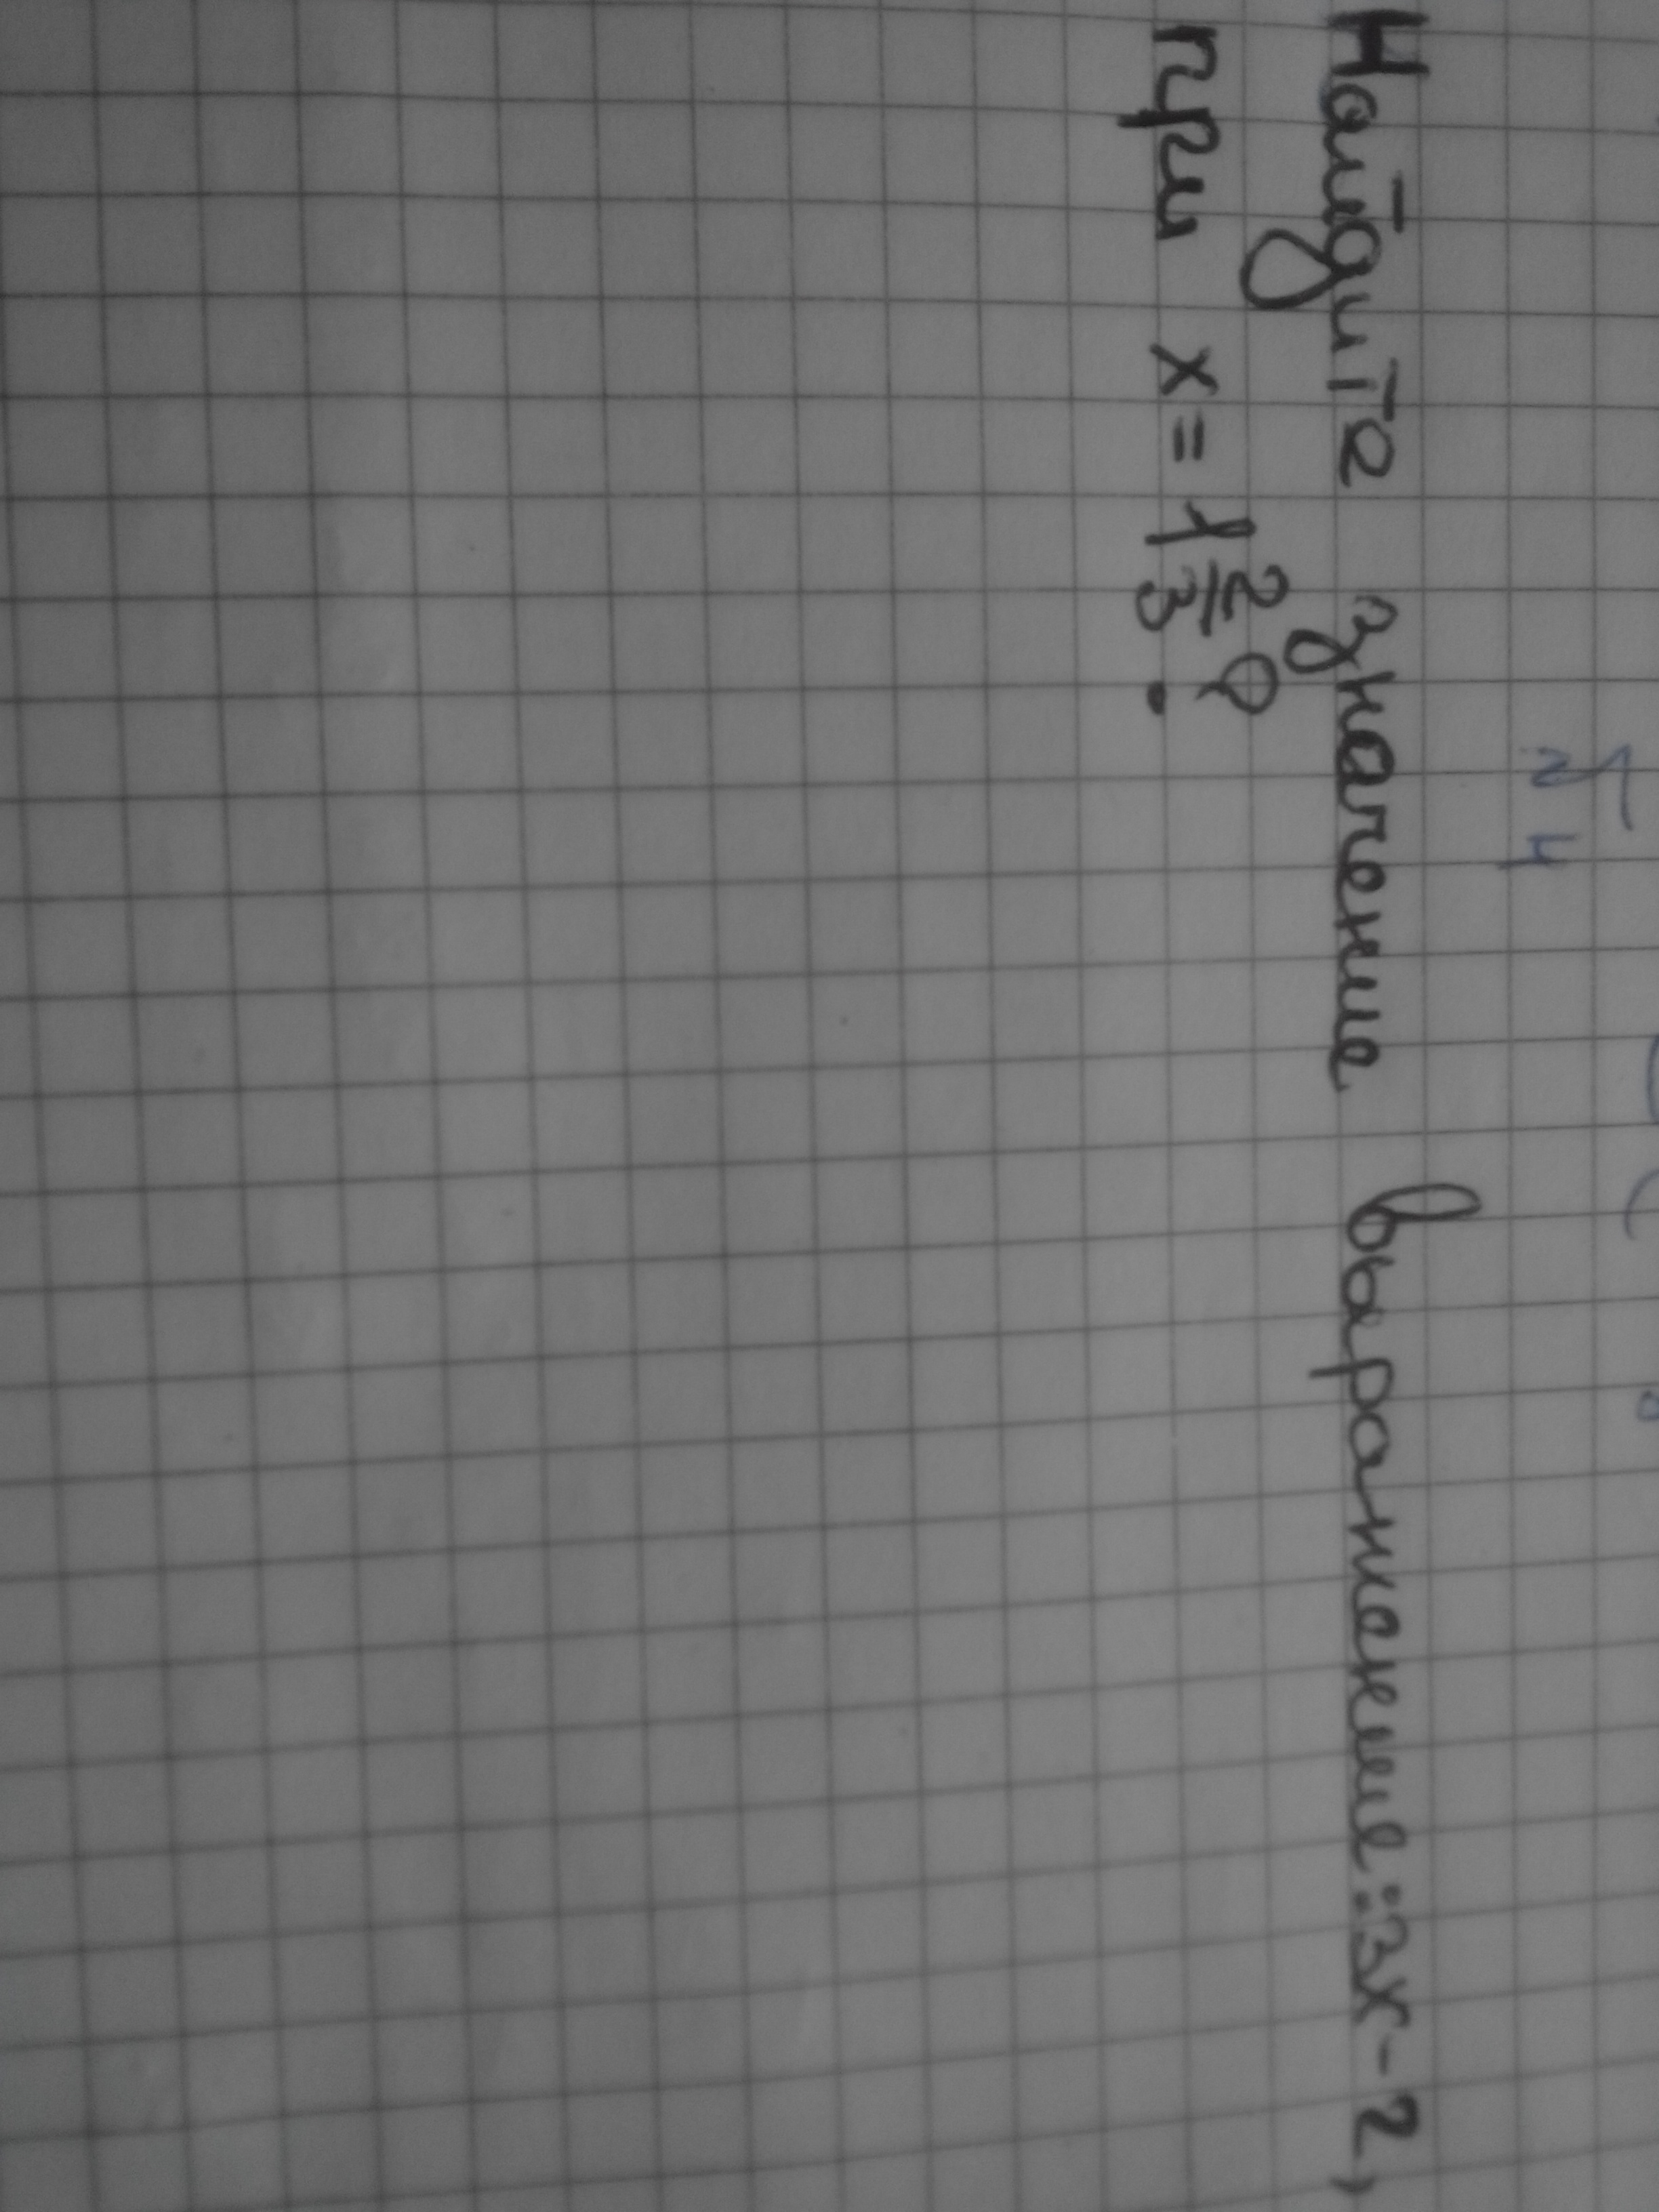 Найдите значение выражение: 3x-2,
при x = 1 2/3 ?